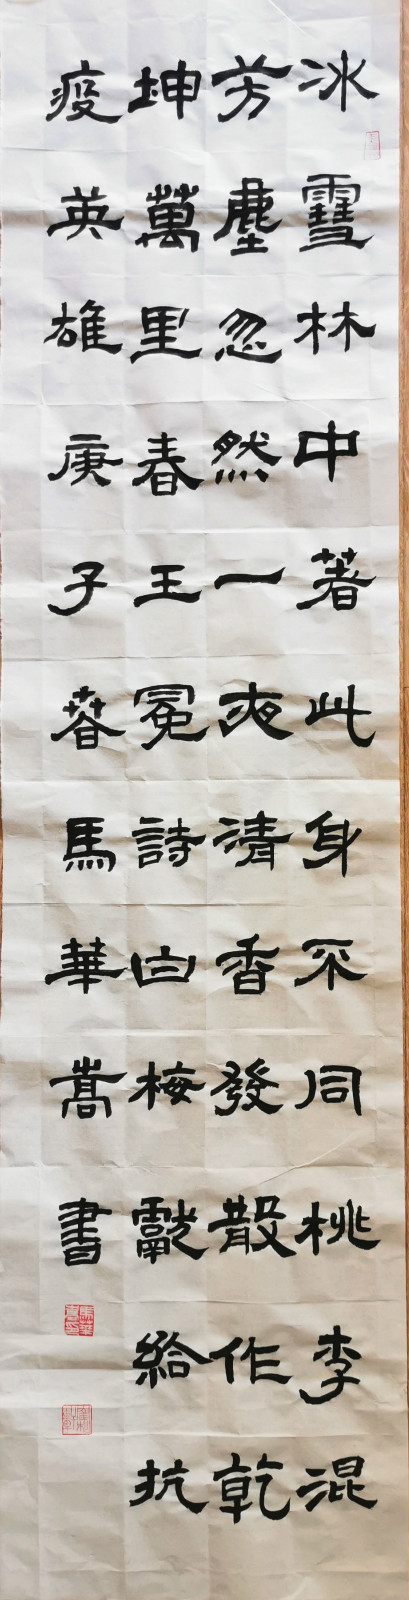 冰雪林中著此身不同桃李混
芳塵忽然一夜清香發散作乾
坤萬里春王冕詩白梅獻給抗
疫英雄庚子春馬華嵩書